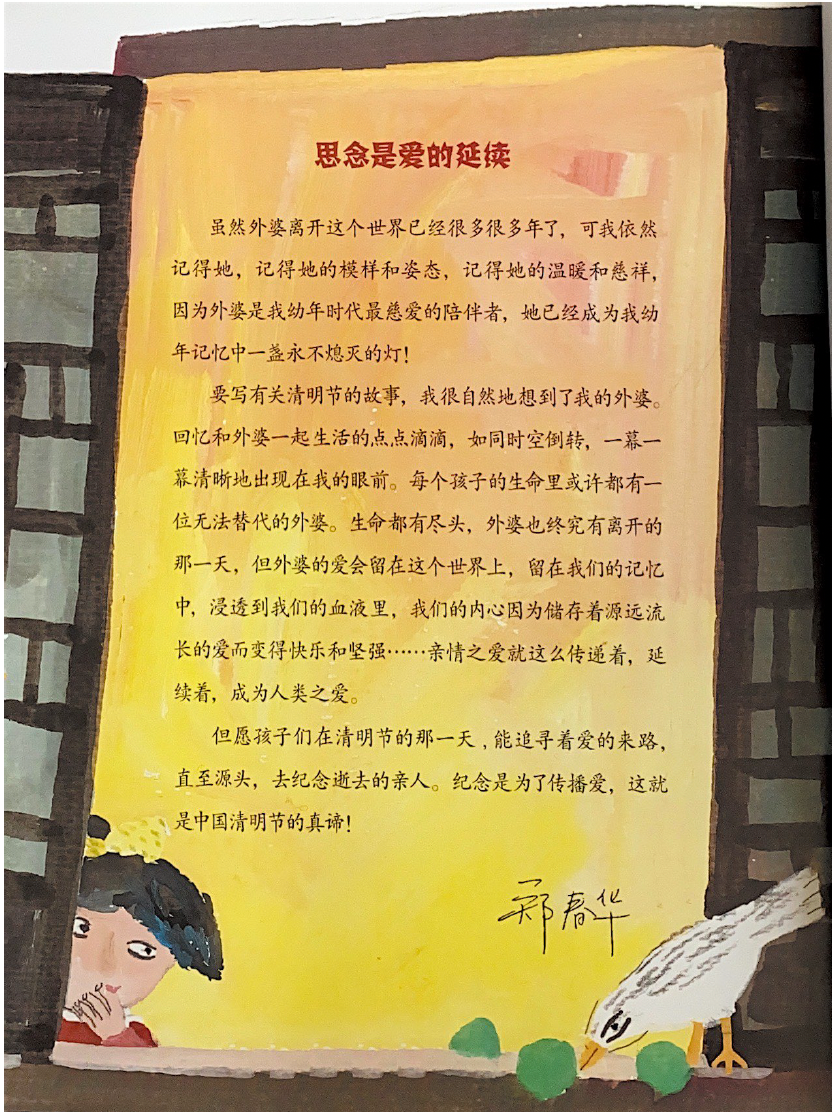 思念是爱的延续
虽然外婆离开这个世界已经很多很多年了，可我依然
记得她，记得她的模样和姿态，记得她的温暖和慈祥，
因为外婆是我幼年时代最慈爱的陪伴者，她已经成为我幼
年记忆中一盏永不熄灭的灯！
要写有关清明节的故事，我很自然地想到了我的外婆。
回忆和外婆一起生活的点点滴滴，如同时空倒转，一幕一
幕清晰地出现在我的眼前。每个孩子的生命里或许都有一
位无法替代的外婆。生命都有尽头，外婆也终究有离开的
那一天，但外婆的爱会留在这个世界上，留在我们的记忆
中，浸透到我们的血液里，我们的内心因为储存着源远流
长的爱而变得快乐和坚强……亲情之爱就这么传递着，延
续着，成为人类之爱。
但愿孩子们在清明节的那一天，能追寻着爱的来路，
直至源头，去纪念逝去的亲人。纪念是为了传播爱，这就
是中国清明节的真谛！
郑春华